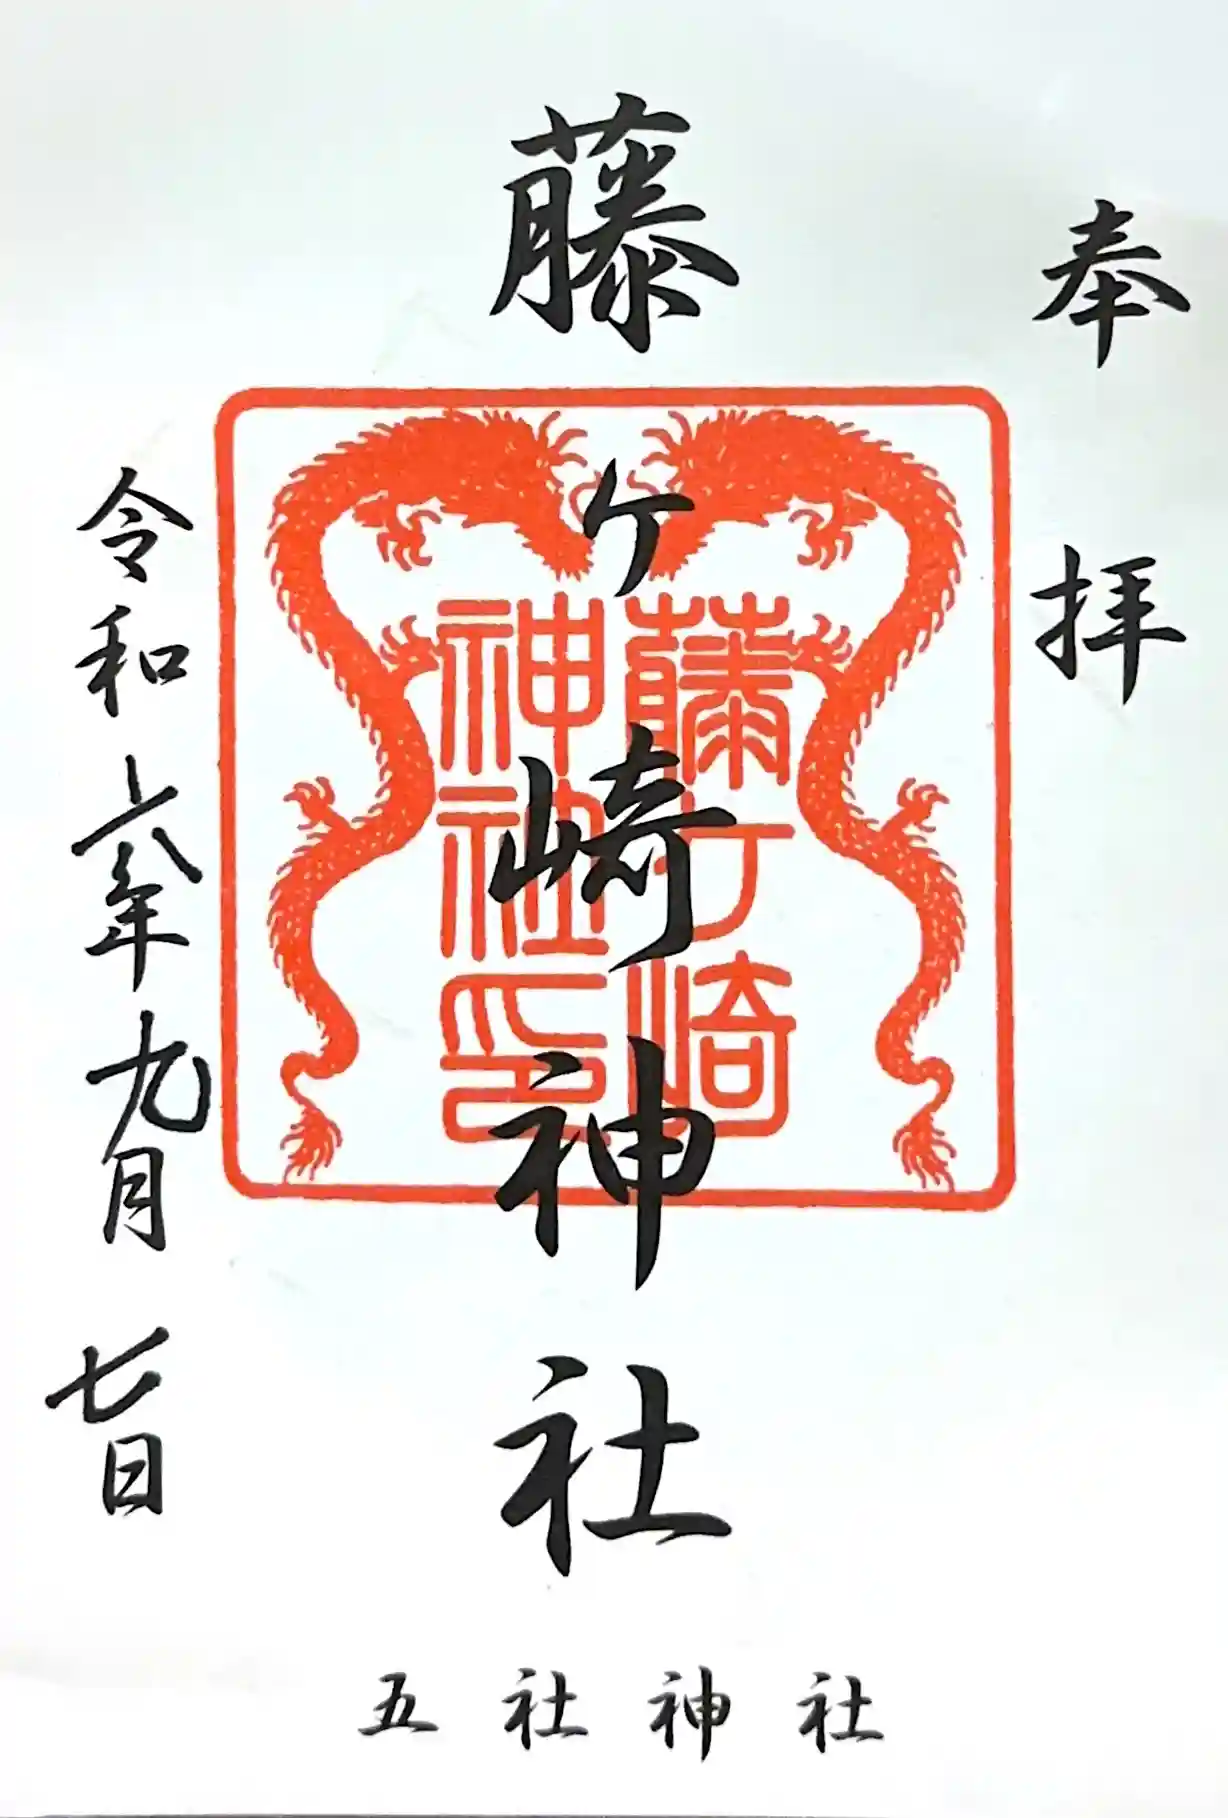 奉拝
藤ケ崎神社
藤ケ崎
神社印
令和六年九月七日
五社神社